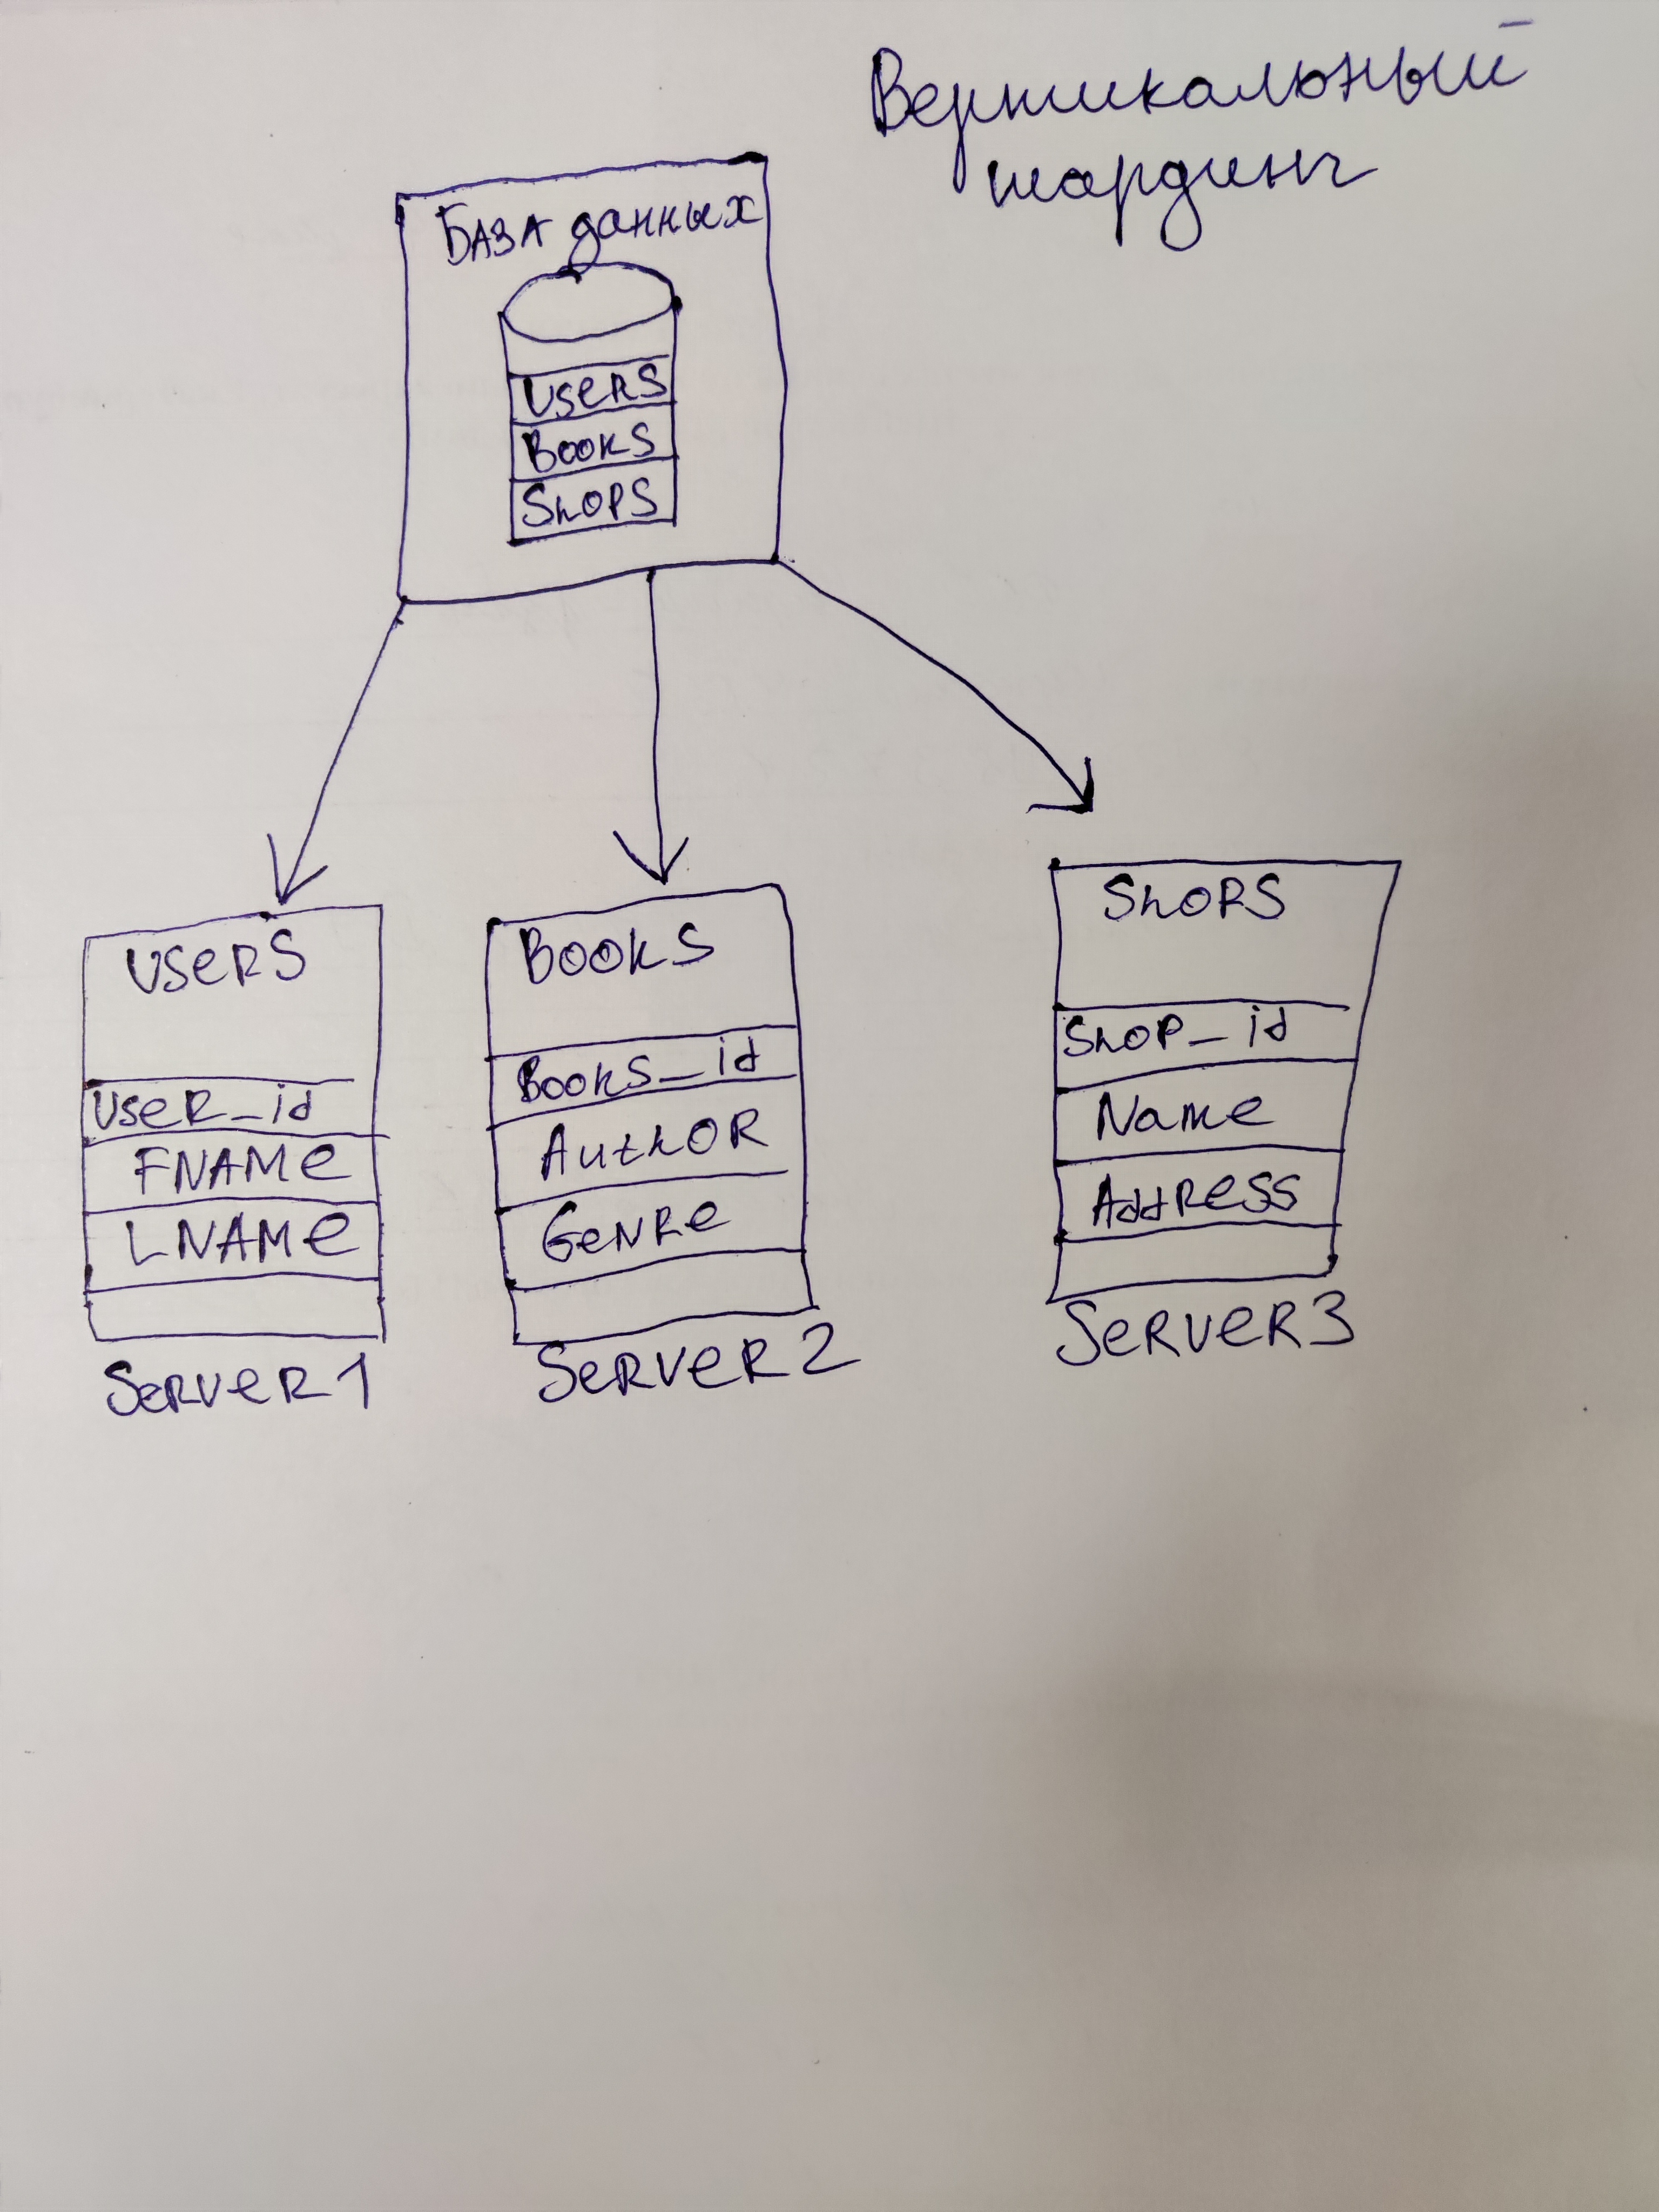 Вертикальный
шардинг
База данных
Users
Books
Shops
Users
User_id
FNAMe
LNAMe
Server1
Books
Books_id
Author
Genre
Server2
ShoRS
Shop_id
Name
Address
Server3